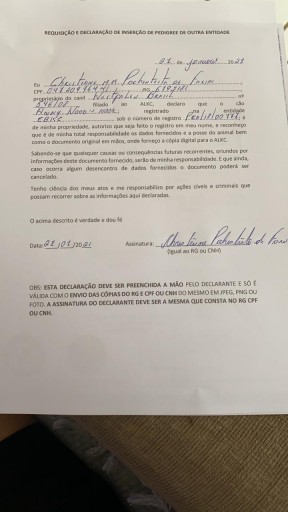 REQUISIÇÃO E DECLARAÇÃO DE INSERÇÃO DE PEDIGREE DE OUTRA ENTIDADE
21 de janeiro 2021
Eu Christiane M.M. de Faria
CPF RG
proprietário do canil Brasil nº
filiado ao ALKC, declaro que o cão
registrado na entidade
, sob o número de registro
de minha propriedade, autorizo que seja feito o registro em meu nome, e reconheço
que é de minha total responsabilidade os dados fornecidos e a posse do animal bem
como o documento original em mãos, onde forneço a cópia digital para o ALKC.
Sabendo-se que quaisquer causas ou consequências futuras recorrentes, oriundos por
informações deste documento fornecido, serão de minha responsabilidade. E que ainda,
caso ocorra algum desencontro de dados fornecidos o documento poderá ser
cancelado.
Tenho ciência dos meus atos e me responsabilizo por ações cíveis e criminais que
possam recorrer sobre as informações aqui declaradas.
O acima descrito é verdade e dou fé
Data: 21/01/2021 Assinatura:
(Igual ao RG ou CNH)
OBS: ESTA DECLARAÇÃO DEVE SER PREENCHIDA A MÃO PELO DECLARANTE E SÓ É
VÁLIDA COM O ENVIO DAS CÓPIAS DO RG E CPF OU CNH DO MESMO EM JPEG, PNG OU
FOTO. A ASSINATURA DO DECLARANTE DEVE SER A MESMA QUE CONSTA NO RG CPF
OU CNH.